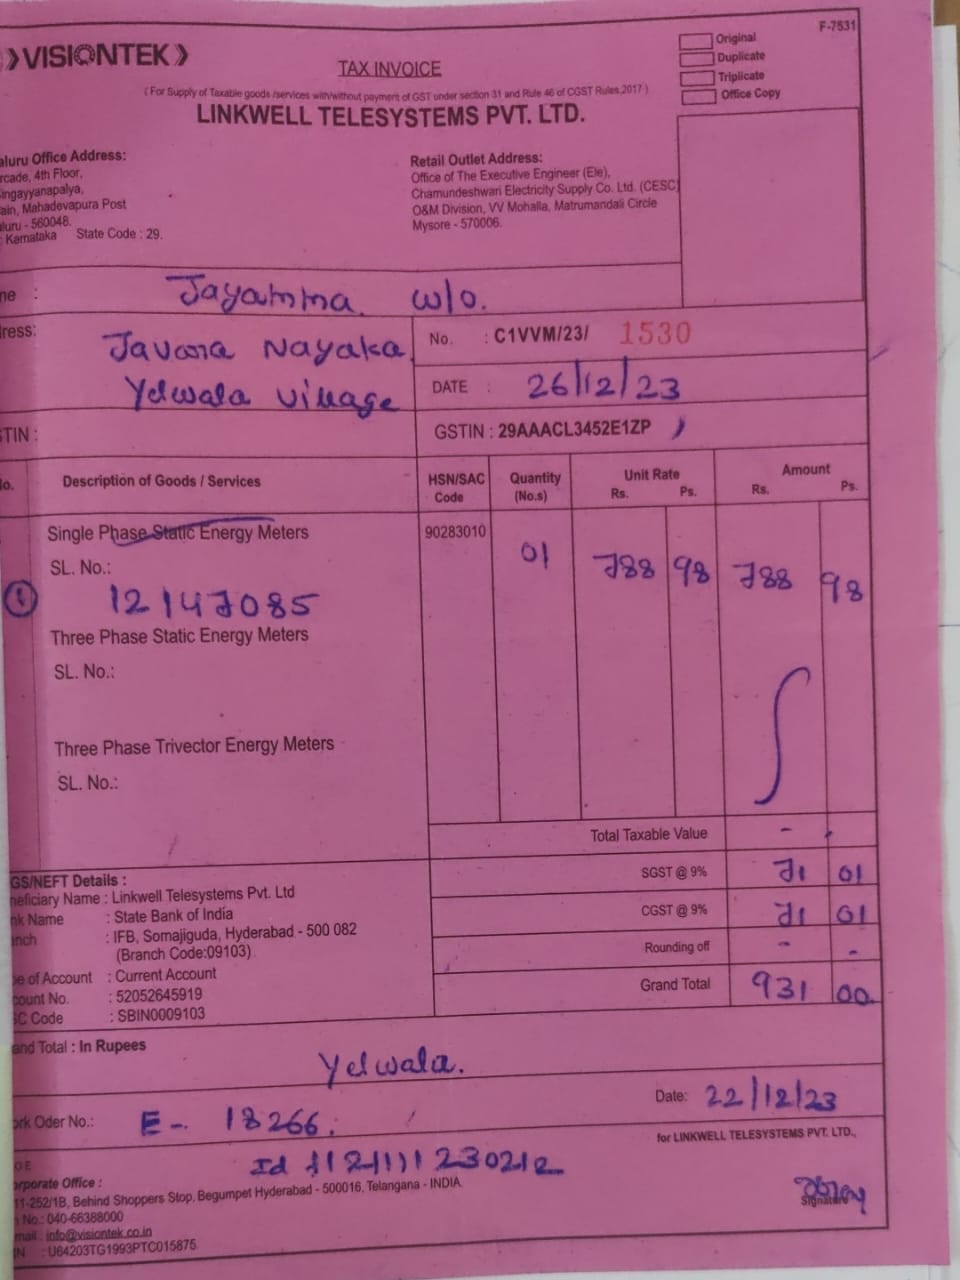 VISIONTEK
F-7531
Original
Duplicate
Triplicate
Office Copy
TAX INVOICE
(For Supply of Taxable goods /services with/without payment of GST under section 31 and Rule 46 of CGST Rules,2017)
LINKWELL TELESYSTEMS PVT. LTD.
Office Address:
4th Floor,
Mahadevapura Post
- 560048.
Karnataka State Code : 29.
Retail Outlet Address:
Office of The Executive Engineer (Ele),
Chamundeshwari Electricity Supply Co. Ltd. (CESC)
O&M Division, VV Mohalla, Matrumandali Circle
Mysore - 570006.
: Jayamma w/o.
Javara Nayaka
Yelwala village
No. : C1VVM/23/ 1530
DATE : 26/12/23
GSTIN : 29AAACL3452E1ZP
Description of Goods / Services HSN/SAC Code Quantity (No.s) Unit Rate Rs. Ps. Amount Rs. Ps.
Single Phase Static Energy Meters 90283010 01 788 98 788 98
SL. No.:
1 12147085
Three Phase Static Energy Meters
SL. No.:
Three Phase Trivector Energy Meters
SL. No.:
Total Taxable Value - -
SGST @ 9% 71 01
CGST @ 9% 71 01
Rounding off - -
Grand Total 931 00
GS/NEFT Details :
Name : Linkwell Telesystems Pvt. Ltd
Name : State Bank of India
: IFB, Somajiguda, Hyderabad - 500 082
(Branch Code:09103)
of Account : Current Account
No. : 52052645919
Code : SBIN0009103
Total : In Rupees
Yelwala.
Date: 22/12/23
Oder No.: E - 18266.
for LINKWELL TELESYSTEMS PVT. LTD.,
Id 112111230212
Office :
11-252/1B, Behind Shoppers Stop, Begumpet Hyderabad - 500016, Telangana - INDIA.
No.: 040-66388000
: info@visiontek.co.in
: U64203TG1993PTC015875
Signature